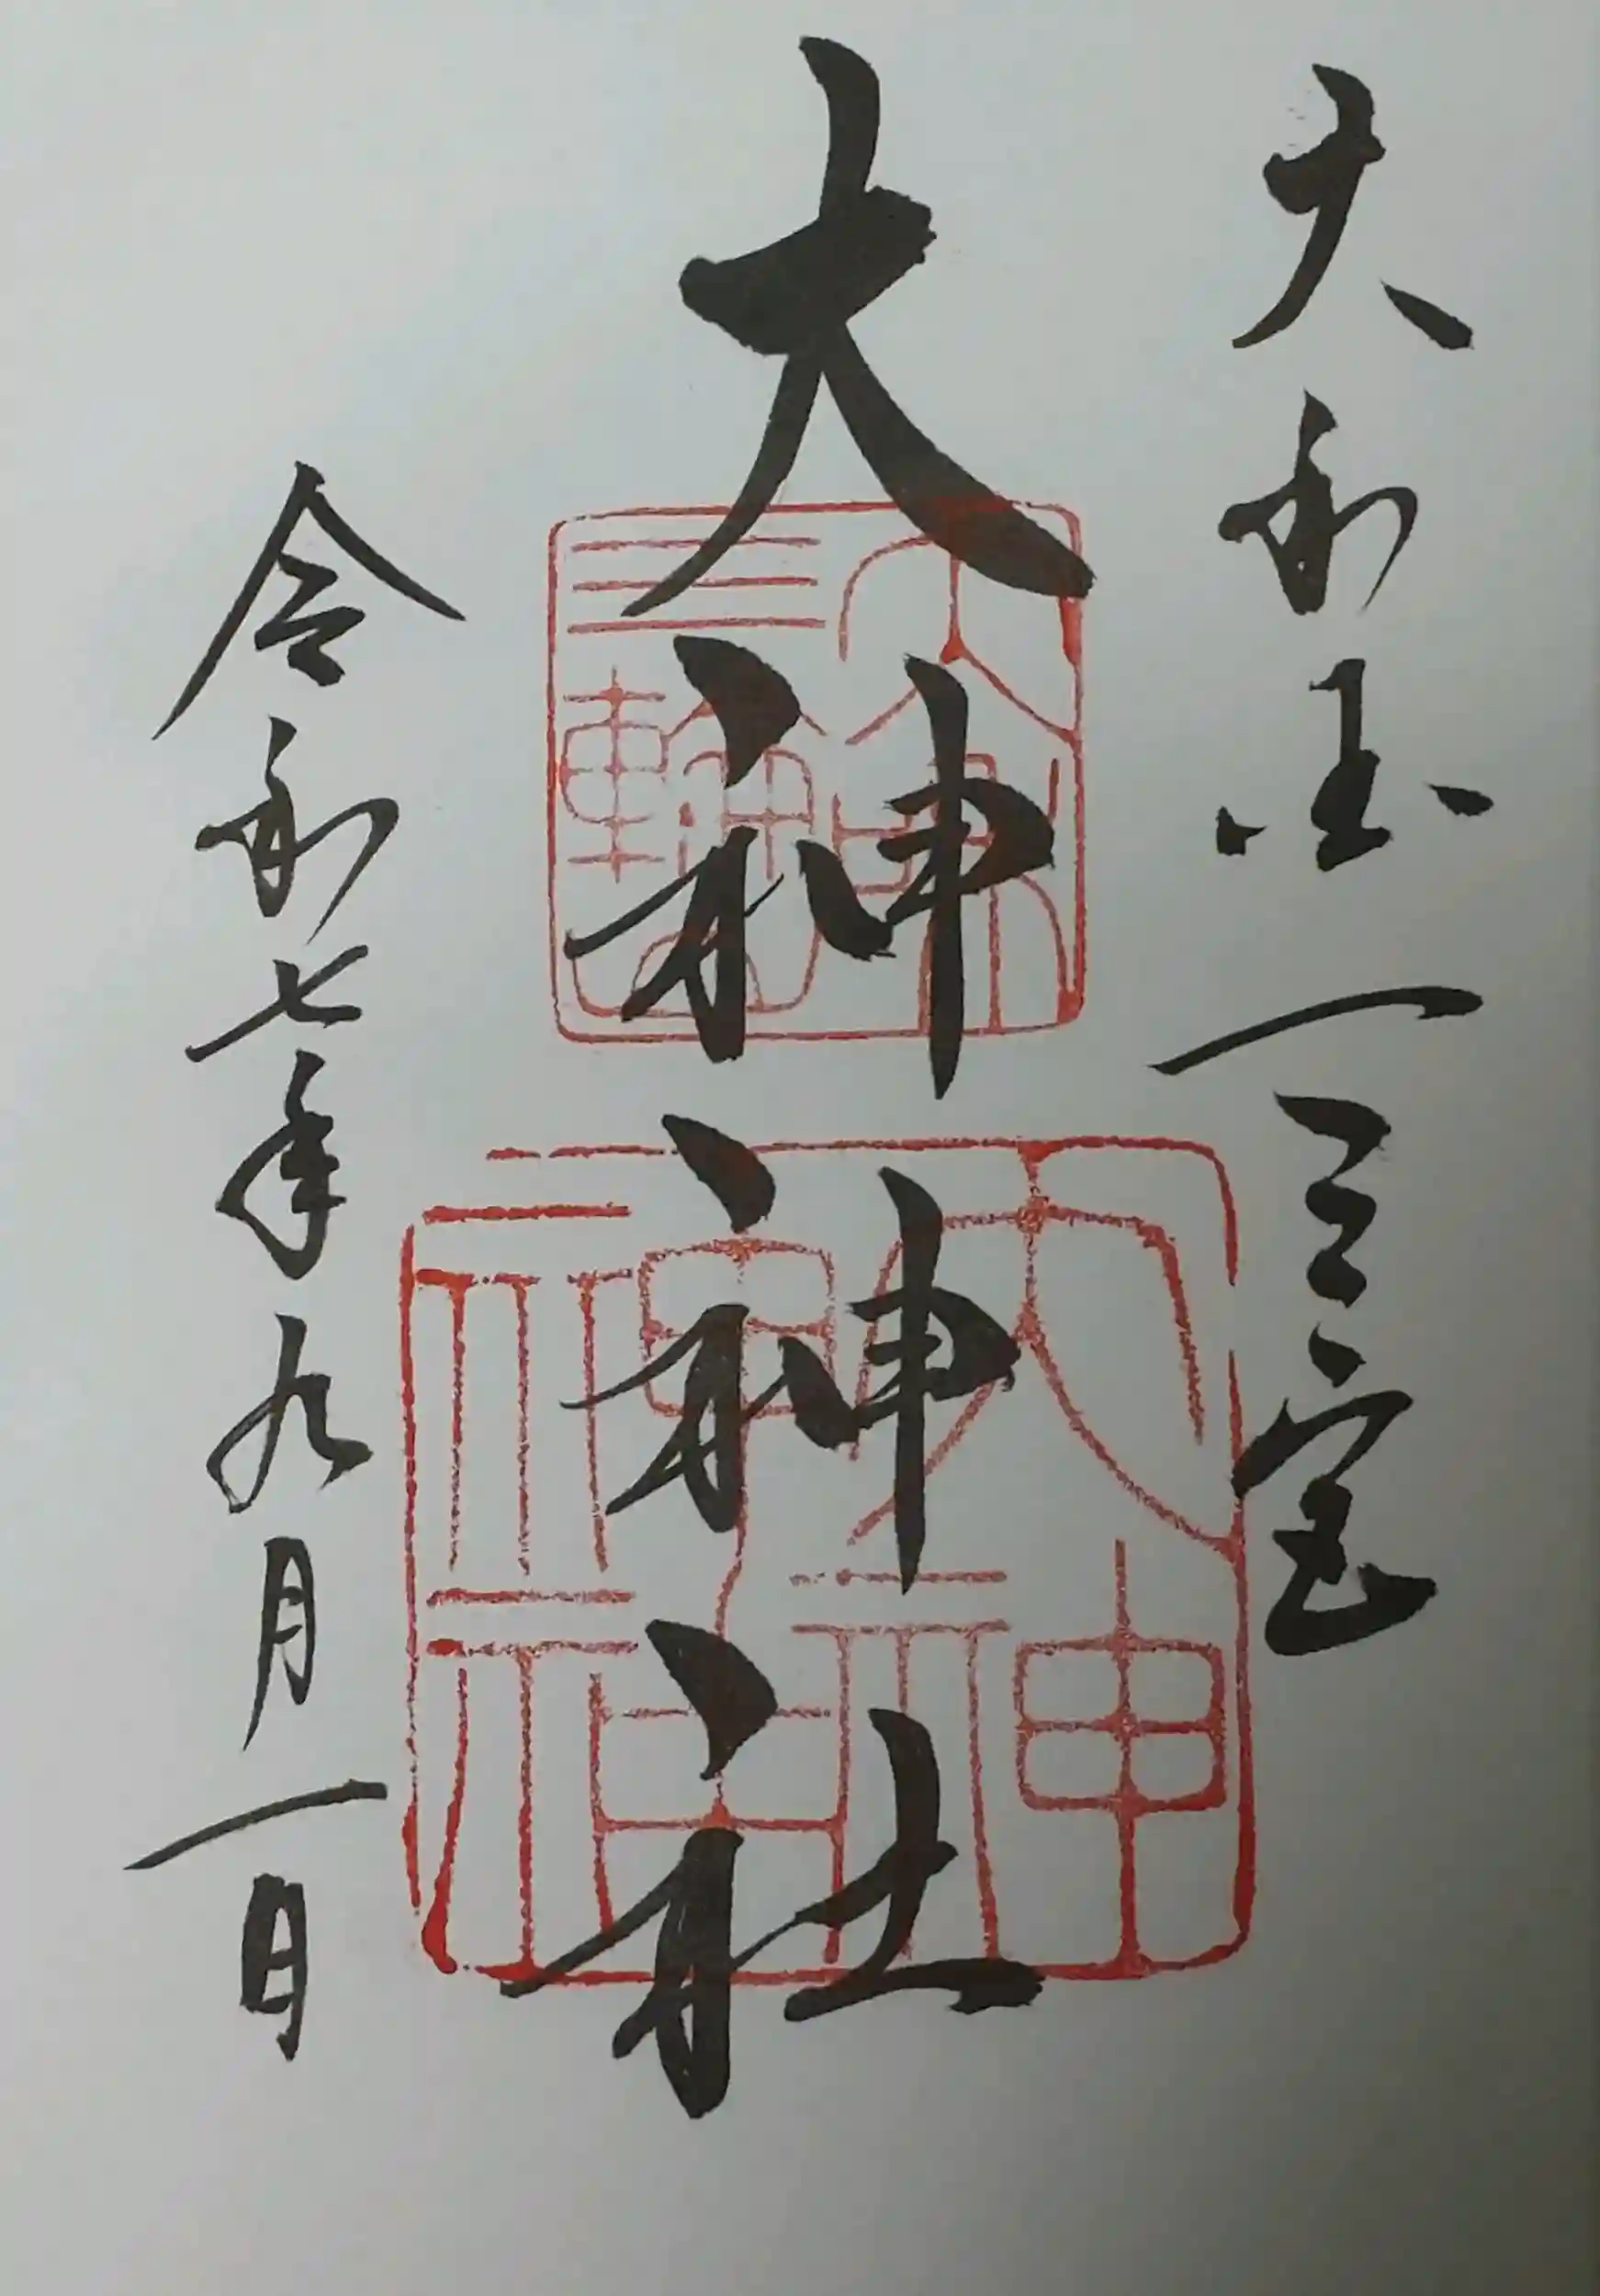 大和国一之宮
大神神社
令和七年九月一日
大神
神社